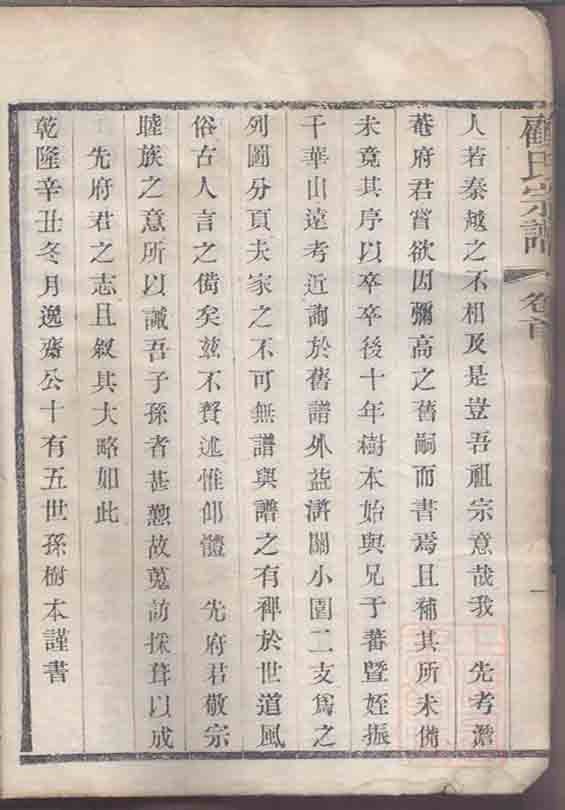 顧氏宗譜 卷首 一
人若秦越之不相及是豈吾祖宗意哉我 先考澹
菴府君嘗欲因彌高之舊嗣而書焉且補其所未備
未竟其序以卒卒後十年樹本始與兄于蕃暨姪振
千華山遠考近詢於舊譜外益滸關小園二支為之
列圖分頁夫家之不可無譜與譜之有裨於世道風
俗古人言之備矣茲不贅述惟仰體 先府君敬宗
睦族之意所以諴吾子孫者甚懃故蒐訪採葺以成
先府君之志且叙其大略如此
乾隆辛丑冬月逸齋公十有五世孫樹本謹書